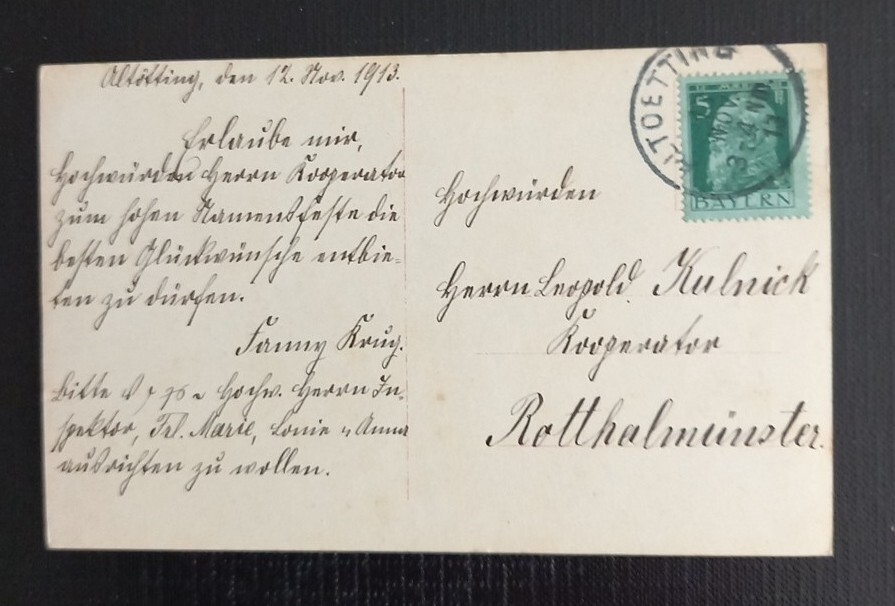 Altötting, den 12. Nov. 1913.
Erlaube mir,
Hochwürden Herrn Kooperator
zum hohen Namensfeste die
besten Glückwünsche entbie-
ten zu dürfen.
Fanny Krug.
Bitte Hochw. Herrn In-
spektor, Frl. Marie, Lonie u Anna
ausrichten zu wollen.
ALTOETTING
NOV
3-4 NM
13
5
BAYERN
Hochwürden
Herrn Leopold Kulnick
Kooperator
Rotthalmünster.